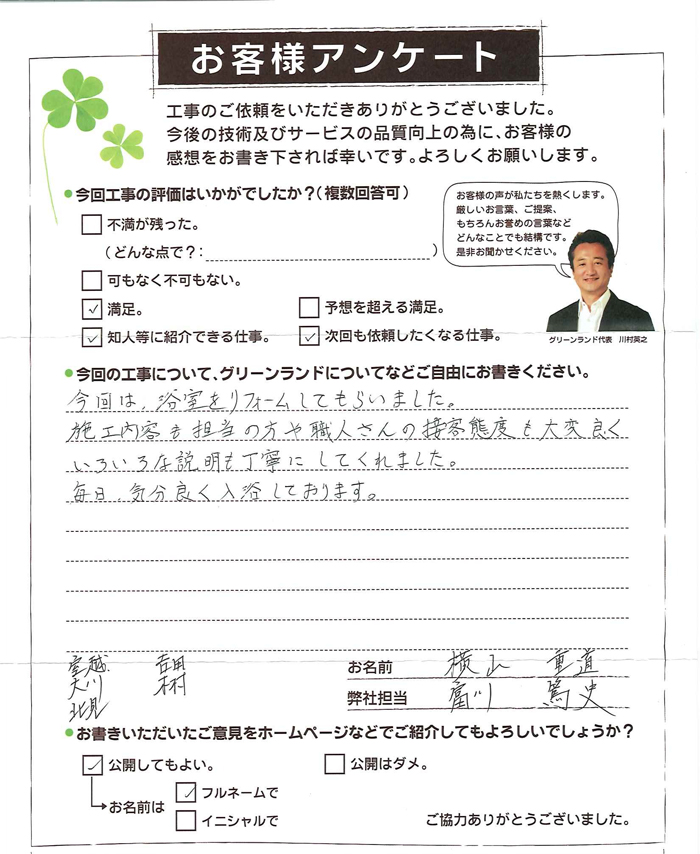 お客様アンケート
工事のご依頼をいただきありがとうございました。
今後の技術及びサービスの品質向上の為に、お客様の
感想をお書き下されば幸いです。よろしくお願いします。
●今回工事の評価はいかがでしたか？(複数回答可)
不満が残った。
(どんな点で？: )
可もなく不可もない。
満足。
予想を超える満足。
知人等に紹介できる仕事。
次回も依頼したくなる仕事。
お客様の声が私たちを熱くします。
厳しいお言葉、ご提案、
もちろんお誉めの言葉など
どんなことでも結構です。
是非お聞かせください。
グリーンランド代表 川村英之
●今回の工事について、グリーンランドについてなどご自由にお書きください。
今回は、浴室をリフォームしてもらいました。
施工内容も担当の方や職人さんの接客態度も大変良く
いろいろな説明も丁寧にしてくれました。
毎日、気分良く入浴しております。
室越 吉田
大川 木村
北見
お名前 横山 重道
弊社担当 富川 篤史
●お書きいただいたご意見をホームページなどでご紹介してもよろしいでしょうか？
公開してもよい。
公開はダメ。
お名前は
フルネームで
イニシャルで
ご協力ありがとうございました。